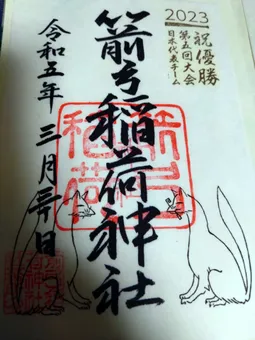 2023
祝優勝
第五回大会
日本代表チーム
箭弓稲荷神社
箭弓
稲荷
令和五年 三月 日